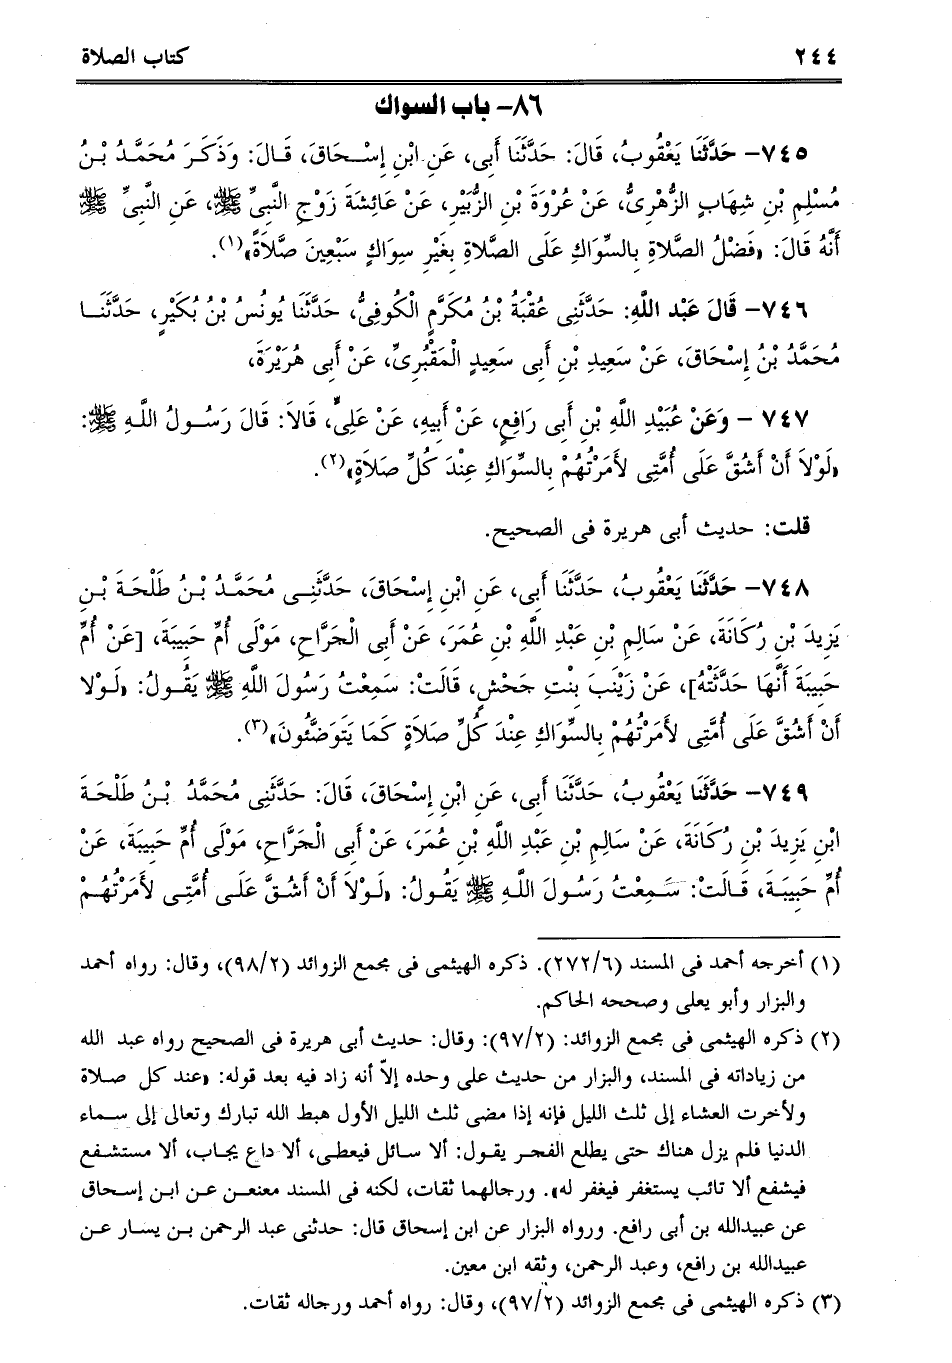 ٢٤٤ كتاب الصلاة
٨٦- باب السواك
٧٤٥- حَدَّثَنَا يَعْقُوبُ، قَالَ: حَدَّثَنَا أَبى، عَنِ ابْنِ إِسْحَاقَ، قَالَ: وَذَكَرَ مُحَمَّدُ بْنُ
مُسْلِمِ بْنِ شِهَابٍ الزُّهْرِىُّ، عَنْ عُرْوَةَ بْنِ الزُّبَيْرِ، عَنْ عَائِشَةَ زَوْجِ النَّبِىِّ ﷺ، عَنِ النَّبِىِّ ﷺ
أَنَّهُ قَالَ: «فَضْلُ الصَّلاَةِ بِالسِّوَاكِ عَلَى الصَّلاَةِ بِغَيْرِ سِوَاكٍ سَبْعِينَ صَلاَةً»(١).
٧٤٦- قَالَ عَبْد اللهِ: حَدَّثَنِى عُقْبَةُ بْنُ مُكَرَّمٍ الْكُوفِىُّ، حَدَّثَنَا يُونُسُ بْنُ بُكَيْرٍ، حَدَّثَنَا
مُحَمَّدُ بْنُ إِسْحَاقَ، عَنْ سَعِيدِ بْنِ أَبى سَعِيدٍ الْمَقْبُرِىِّ، عَنْ أَبى هُرَيْرَةَ،
٧٤٧ - وَعَنْ عُبَيْدِ اللَّهِ بْنِ أَبى رَافِعٍ، عَنْ أَبِيهِ، عَنْ عَلِىٍّ، قَالاَ: قَالَ رَسُولُ اللَّهِ ﷺ:
«لَوْلاَ أَنْ أَشُقَّ عَلَى أُمَّتِى لأَمَرْتُهُمْ بِالسِّوَاكِ عِنْدَ كُلِّ صَلاَةٍ»(٢).
قلت: حديث أبى هريرة فى الصحيح.
٧٤٨- حَدَّثَنَا يَعْقُوبُ، حَدَّثَنَا أَبى، عَنِ ابْنِ إِسْحَاقَ، حَدَّثَنِى مُحَمَّدُ بْنُ طَلْحَةَ بْنِ
يَزِيدَ بْنِ رُكَانَةَ، عَنْ سَالِمِ بْنِ عَبْدِ اللَّهِ بْنِ عُمَرَ، عَنْ أَبى الْجَرَّاحِ، مَوْلَى أُمِّ حَبِيبَةَ، [عَنْ أُمِّ
حَبِيبَةَ أَنَّهَا حَدَّثَتْهُ]، عَنْ زَيْنَبَ بِنْتِ جَحْشٍ، قَالَتْ: سَمِعْتُ رَسُولَ اللَّهِ ﷺ يَقُولُ: «لَوْلا
أَنْ أَشُقَّ عَلَى أُمَّتِى لأَمَرْتُهُمْ بِالسِّوَاكِ عِنْدَ كُلِّ صَلاَةٍ كَمَا يَتَوَضَّئُونَ»(٣).
٧٤٩- حَدَّثَنَا يَعْقُوبُ، حَدَّثَنَا أَبى، عَنِ ابْنِ إِسْحَاقَ، قَالَ: حَدَّثَنِى مُحَمَّدُ بْنُ طَلْحَةَ
ابْنِ يَزِيدَ بْنِ رُكَانَةَ، عَنْ سَالِمِ بْنِ عَبْدِ اللَّهِ بْنِ عُمَرَ، عَنْ أَبى الْجَرَّاحِ، مَوْلَى أُمِّ حَبِيبَةَ، عَنْ
أُمِّ حَبِيبَةَ، قَالَتْ: سَمِعْتُ رَسُولَ اللَّهِ ﷺ يَقُولُ: «لَوْلاَ أَنْ أَشُقَّ عَلَى أُمَّتِى لأَمَرْتُهُمْ
(١) أخرجه أحمد فى المسند (٢٧٢/٦). ذكره الهيثمى فى مجمع الزوائد (٩٨/٢)، وقال: رواه أحمد
والبزار وأبو يعلى وصححه الحاكم.
(٢) ذكره الهيثمى فى مجمع الزوائد: (٩٧/٢): وقال: حديث أبى هريرة فى الصحيح رواه عبد الله
من زياداته فى المسند، والبزار من حديث على وحده إلاّ أنه زاد فيه بعد قوله: «عند كل صلاة
ولأخرت العشاء إلى ثلث الليل فإنه إذا مضى ثلث الليل الأول هبط الله تبارك وتعالى إلى سماء
الدنيا فلم يزل هناك حتى يطلع الفجر يقول: ألا سائل فيعطى، ألا داع يجاب، ألا مستشفع
فيشفع ألا تائب يستغفر فيغفر له». ورجالهما ثقات، لكنه فى المسند معنعن عن ابن إسحاق
عن عبيدالله بن أبى رافع. ورواه البزار عن ابن إسحاق قال: حدثنى عبد الرحمن بن يسار عن
عبيدالله بن رافع، وعبد الرحمن، وثقه ابن معين.
(٣) ذكره الهيثمى فى مجمع الزوائد (٩٧/٢)، وقال: رواه أحمد ورجاله ثقات.